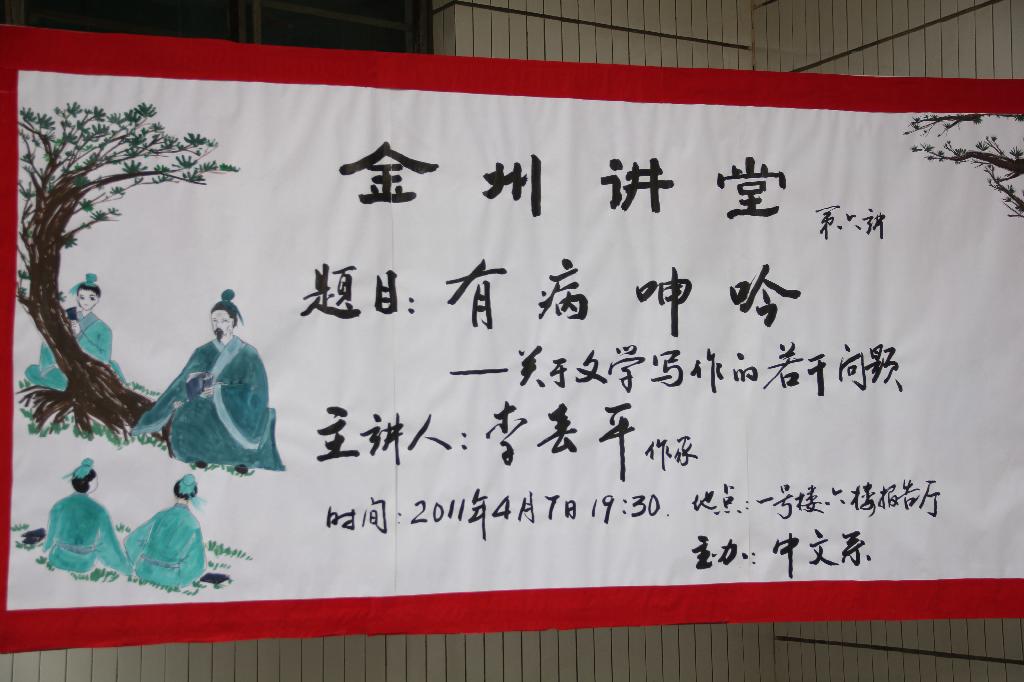 金州讲堂 第六讲
题目：有病呻吟
——关于文学写作的若干问题
主讲人：李春平 作家
时间：2011年4月7日19:30. 地点：一号楼六楼报告厅
主办：中文系